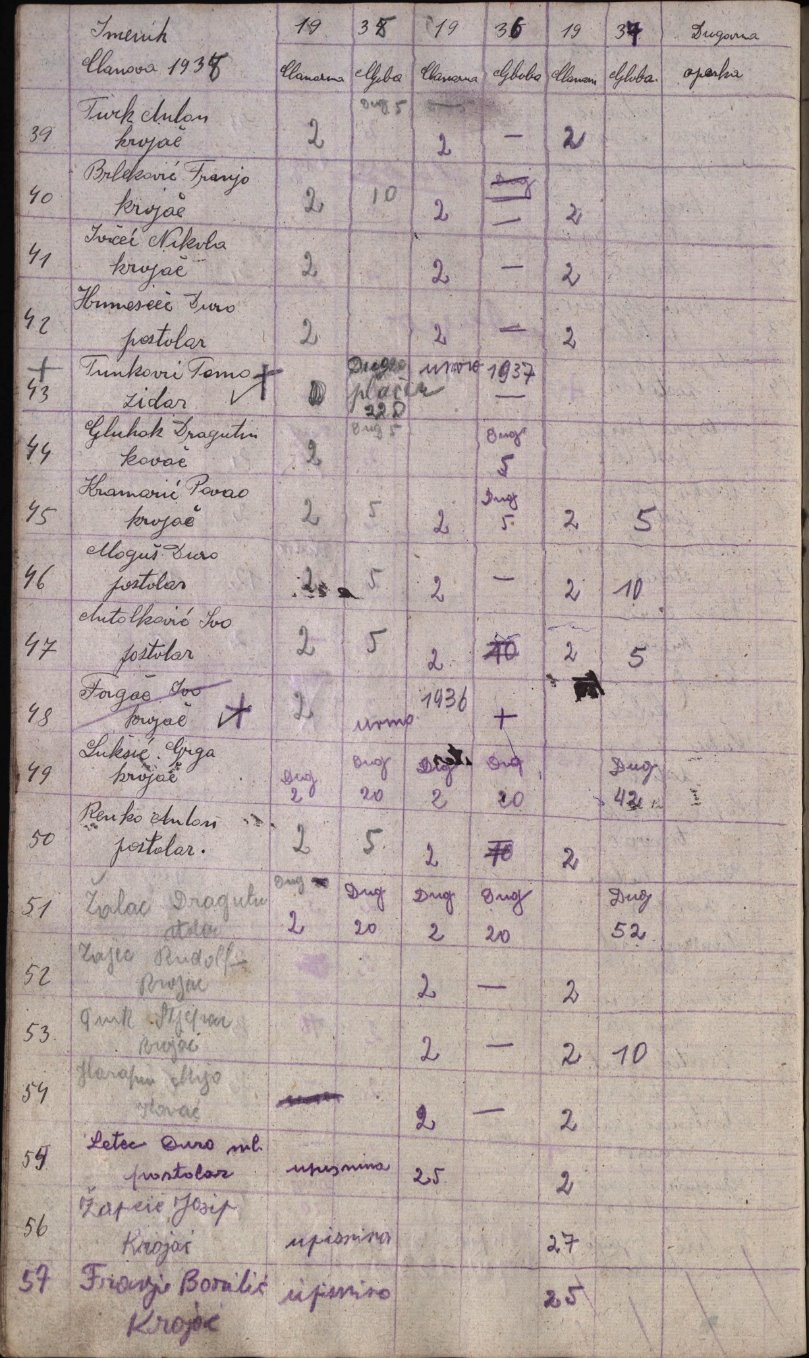 Imenik 19 38 19 36 19 37 Dugovna
Članova 1937 Članarina Globa Članarina Globa Članari Globa opaska
Turk Antun Dug 5
39 krojač 2 2 — 2
Brleković Franjo Dug
40 krojač 2 10 2 — 2
Ivčeć Nikola
41 krojač 2 2 — 2
Đuro
42 postolar 2 2 — 2
+ Tomo + umro 1937
43 zidar plaća —
Gluhak Dragutin Dug 5 Dug
44 kovač 2 5
Kramarić Pavao Dug
45 krojač 2 5 2 5 2 5
Moguš Đuro
46 postolar 2 5 2 — 2 10
Antolković Ivo
47 postolar 2 5 2 10 2 5
Forgač Ivo 1936
48 krojač + 2 umro +
Lukšić Grga Dug Dug Dug Dug Dug
49 krojač 2 20 2 20 42
Renko Antun
50 postolar. 2 5 2 10 2
Žalac Dragutin Dug Dug Dug Dug Dug
51 2 20 2 20 52
Zajec Rudolf
52 Krojač 2 — 2
Stjepan
53 krojač 2 — 2 10
Mijo
54 Kovač 2 — 2
Letec Đuro ml.
55 postolar upisnina 25 2
Žapčić Josip
56 Krojač upisnina 27
57 Franjo Boralić upisnina 25
Krojač